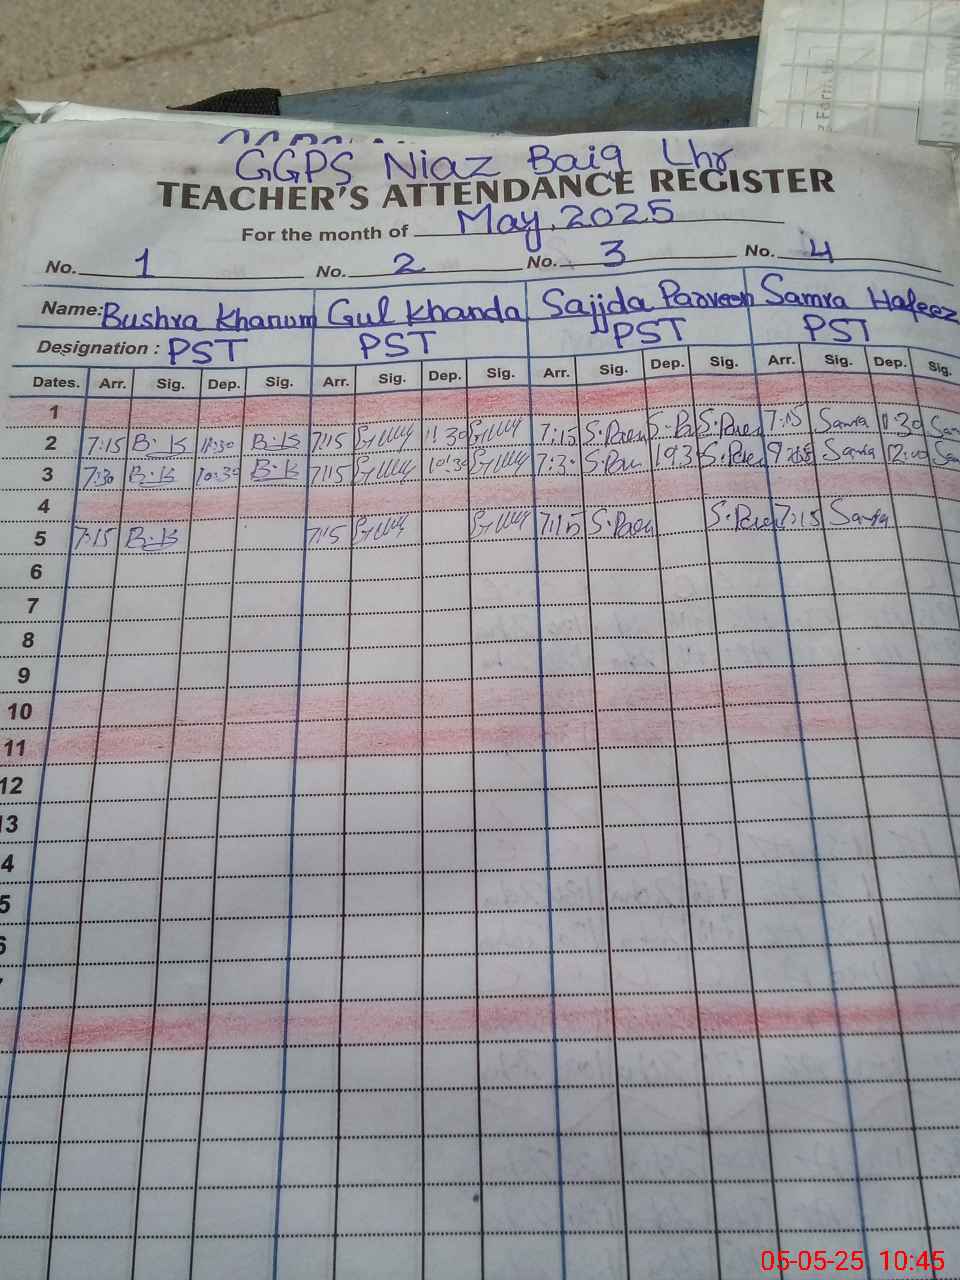 GGPS Niaz Baig Lhr
TEACHER'S ATTENDANCE REGISTER
For the month of May, 2025
No. 1 No. 2 No. 3 No. 4
Name: Bushra Khanum Gul Khanda Sajjda Parveen Samra Hafeez
Designation : PST PST PST PST
Dates. Arr. Sig. Dep. Sig. Arr. Sig. Dep. Sig. Arr. Sig. Dep. Sig. Arr. Sig. Dep. Sig.
1
2 7:15 B.K 11:30 B.K 7:15 11:30 7:15 7:15 Samra 11:30
3 7:30 B.K 10:30 B.K 7:15 10:30 Samra 12:00
4
5 7:15 B.K 7:15 7:15 7:15 Samra
6
7
8
9
10
11
12
13
4
5
6
05-05-25 10:45